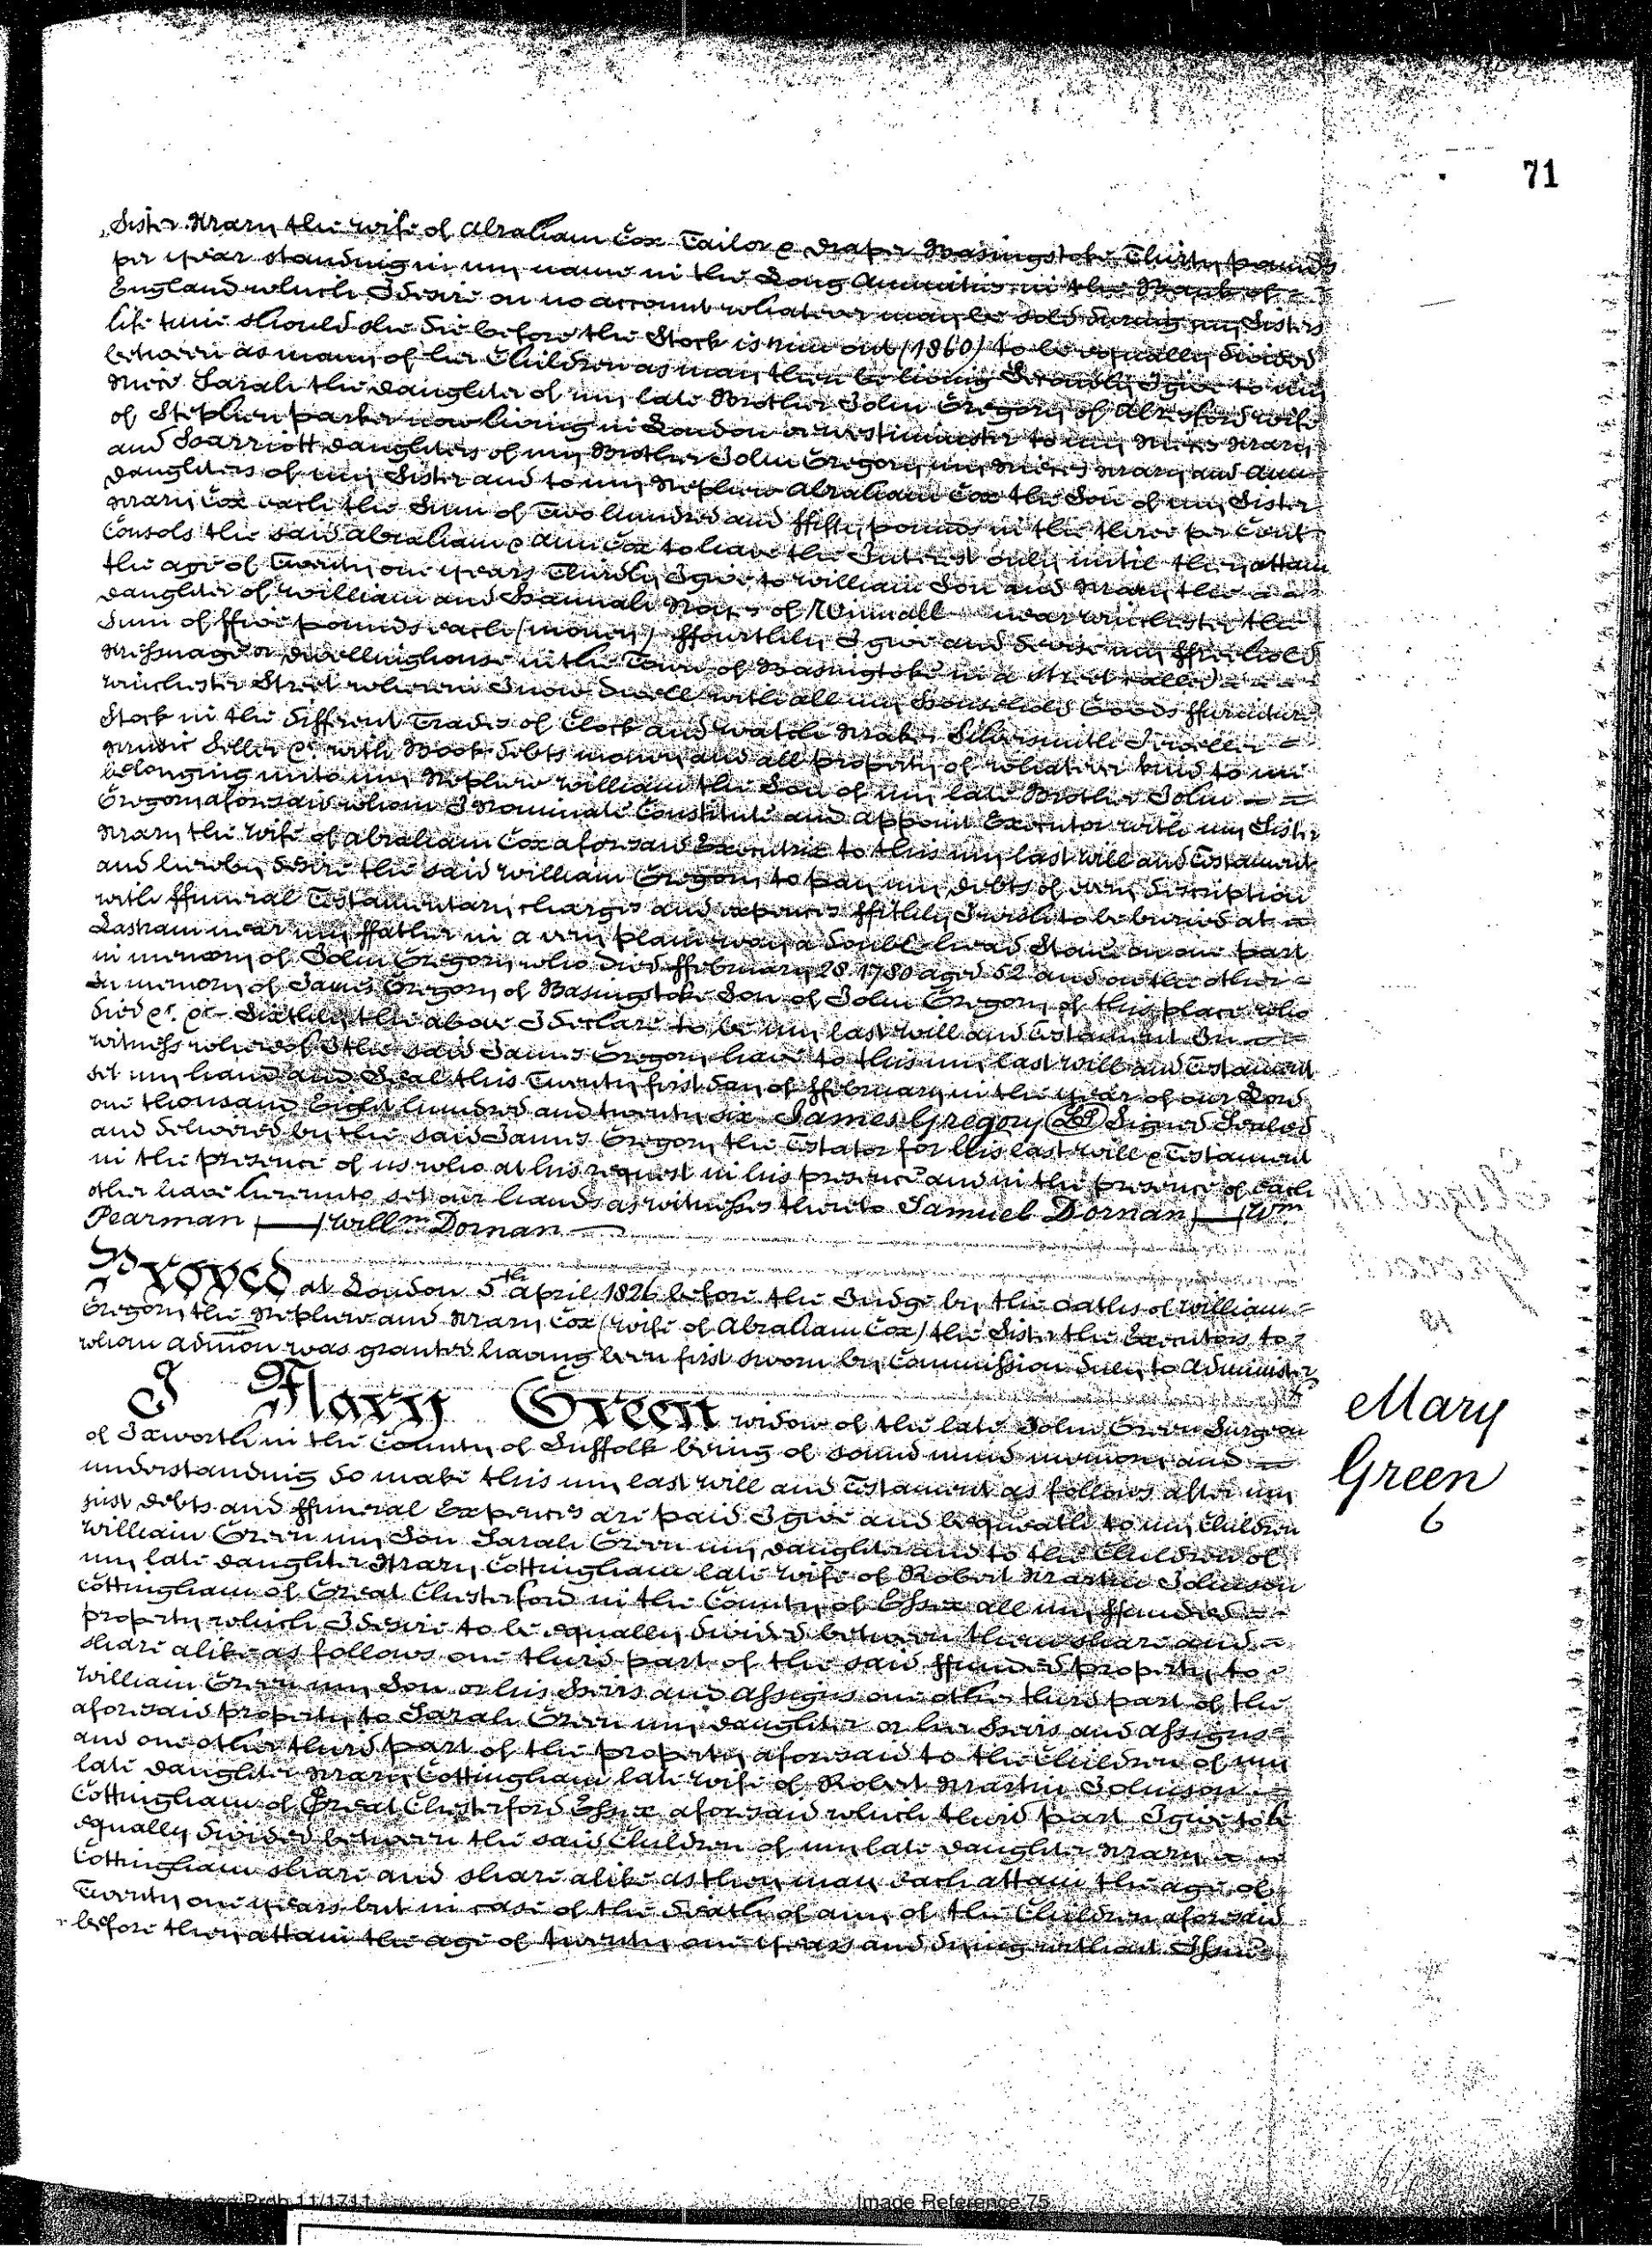 71
Sister Mary the wife of Abraham Cox Tailor & Draper Basingstoke Thirty pounds
per year standing in my name in the Long Annuities in the Bank of
England which I desire on no account whatever may be sold during my Sisters
life time should she die before the Stock is run out (1860) to be equally divided
between as many of her Children as may then be living Secondly I give to my
Niece Sarah the daughter of my late Brother John Gregory of Alresford wife
of Stephen parker now living in London or Westminster to my Nieces Mary
and Harriott daughters of my Brother John Gregory my Nieces Mary and Ann
daughters of my Sister and to my Nephew Abraham Cox the Son of my Sister
Mary Cox each the Sum of Two hundred and ffifty pounds in the three per Cent
Consols the said Abraham & Ann Cox to have the Interest only until they attain
the age of Twenty one years Thirdly I give to William Son and Mary the
daughter of William and Hannah Noyes of Winnall near Winchester the
Sum of ffive pounds each (money) ffourthly I give and devise my ffreehold
Messuage or dwellinghouse in the Town of Basingstoke in a street called
Winchester Street wherein I now dwell with all my Household Goods ffurniture
Stock in the different Trades of Clock and Watch Maker Silversmith Jeweller
Music Seller &c with Book debts money and all property of whatever kind to me
belonging unto my Nephew William the Son of my late Brother John
Gregory aforesaid whom I Nominate Constitute and appoint Executor with my Sister
Mary the Wife of Abraham Cox aforesaid Executrix to this my last Will and Testament
and hereby desire the said William Gregory to pay my debts of every discription
with ffuneral Testamentary charges and expences ffifthly I wish to be buried at
Lasham near my ffather in a very plain way a double head Stone on one part
in memory of John Gregory who died ffebruary 28 1780 aged 52 and on the other
In memory of James Gregory of Basingstoke Son of John Gregory of this place who
died &c &c Sixthly the above I declare to be my last Will and Testament In
witness whereof I the said James Gregory have to this my last Will and Testament
set my hand and Seal this Twenty first day of ffebruary in the year of our Lord
one thousand Eight hundred and twenty six James Gregory (LS) Signed Sealed
and delivered by the said James Gregory the Testator for his last Will & Testament
in the presence of us who at his request in his presence and in the presence of each
other have hereunto set our hands as witnesses thereto Samuel Dornan Wm
Pearman Willm Dornan
Proved at London 5th April 1826 before the Judge by the Oaths of William
Gregory the Nephew and Mary Cox (Wife of Abraham Cox) the Sister the Executors to
whom admon was granted having been first sworn by Commission duly to Administer
I Mary Green widow of the late John Green Surgeon
of Ixworth in the County of Suffolk being of sound mind memory and
understanding do make this my last Will and Testament as follows after my
just debts and ffuneral Expences are paid I give and bequeath to my Children
William Green my Son Sarah Green my daughter and to the Children of
my late daughter Mary Cottingham late Wife of Robert Martin Johnson
Cottingham of Great Chesterford in the County of Essex all my ffunded
property which I desire to be equally divided between them share and
share alike as follows one third part of the said ffunded property to
William Green my Son or his Heirs and Assigns one other third part of the
aforesaid property to Sarah Green my daughter or her Heirs and Assigns
and one other third part of the property aforesaid to the Children of my
late daughter Mary Cottingham late Wife of Robert Martin Johnson
Cottingham of Great Chesterford Essex aforesaid which third part I give to be
equally divided between the said Children of my late daughter Mary
Cottingham share and share alike as they may each attain the age of
Twenty one years but in case of the death of any of the Children aforesaid
before they attain the age of twenty one years and dying without Issue
Mary
Green
6
Reference Prob 11/1711
Image Reference 75